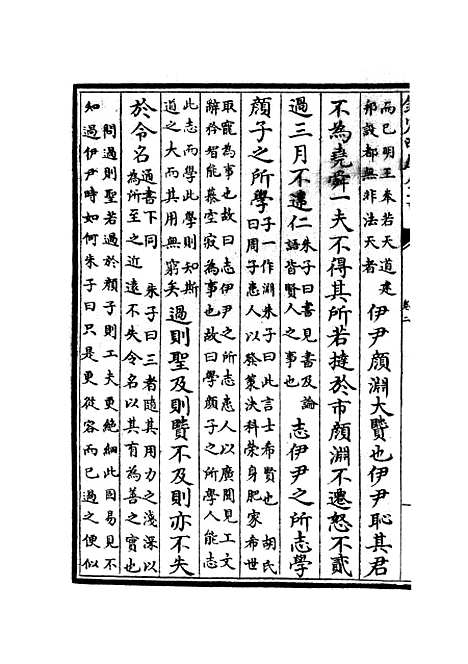 而已明王奉若天道建
邦設都無非法天者
伊尹顏淵大賢也伊尹恥其君
不為堯舜一夫不得其所若撻於市顏淵不遷怒不貳
過三月不違仁
朱子曰書見書及論
語皆賢人之事也
志伊尹之所志學
顏子之所學
子一作淵朱子曰此言士希賢也 胡氏
曰周子患人以發策決科榮身肥家希世
取寵為事也故曰志伊尹之所志患人以廣聞見工文
辭矜智能慕空寂為事也故曰學顏子之所學人能志
此志而學此學則知斯
道之大而其用無窮矣
過則聖及則賢不及則亦不失
於令名
通書下同 朱子曰三者隨其用力之淺深以
為所至之近遠不失令名以其有為善之實也
問過則聖若過於顏子則工夫更絕細此固易見不
知過伊尹時如何朱子曰只是更從容而已過之便似
卷二